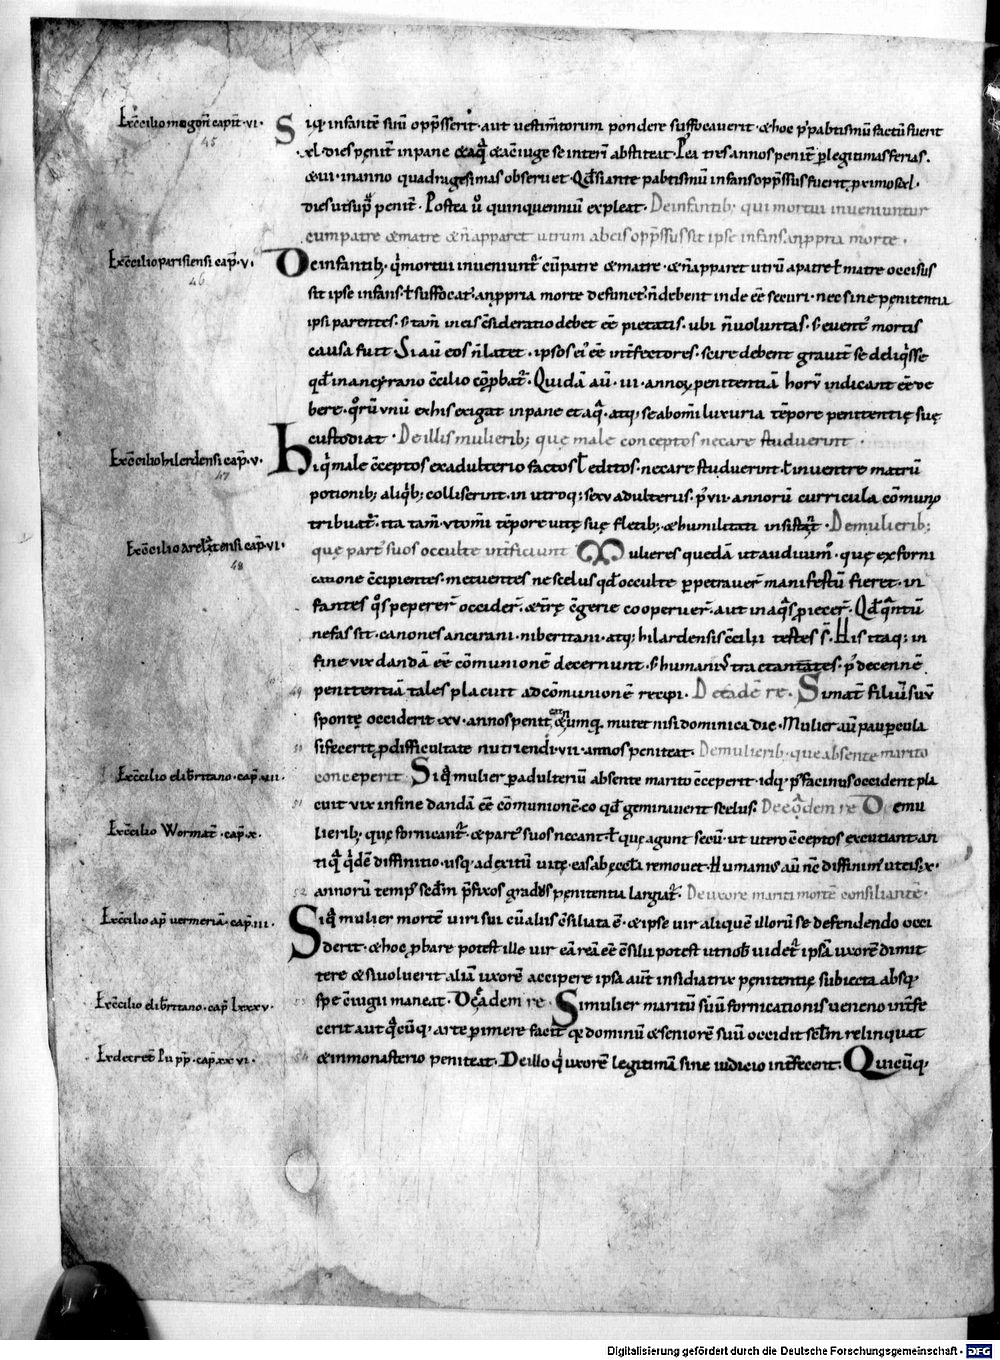 Exc̄cilio mogoñ capit̄ vi·
45
Siq̇ infantē suū opp̄sserit · aut vestim̄torum pondere suffocaverit · & hoc p̄ pabtismū factū fuerit
·xl· dies penit̄ in pane & aq̄ & ac̄iuge se interī abstiteat · P̄ea tres annos penit̄ p̱ legitimas ferias.
& iii· in anno quadragesimas observet · Qd̄ si ante pabtismū infans opp̄ssus fuerit, p̱ximos xl·
dies ut sup̄ penit̄ · Postea ū quinquenniū expleat · De infantib; qui mortui inveniuntur
cum patre & matre & n̄ apparet utrum ab eis opp̄ssus sit ipse infans. an p̱pria morte ·
Exc̄cilio parisiensi cap̄ · v·
46
De infantib; q̇ mortui inveniunt̄ cū patre & matre · & n̄ apparet utrū a patre ł matre occisus
sit ipse infans · ł suffocat᷒ · an p̱pria morte defunct᷒ · n̄ debent inde eē securi · nec sine penitentia
ipsi parentes · s; tam̄ in eis c̄sideratio debet eē pietatis · ubi n̄ voluntas · s; event᷒ mortis
causa fuit · Si aū eos n̄ latet · ipsos ei᷒ eē int̄fectores · scire debent gravit̄ se deliq̇sse
qd̄ in ancyrano c̄cilio cōp̱bat᷒ · Quidā aū · iii· annoꝝ penitentiā horū indicant eē de
bere · qꝛū unū ex his exigat in pane et aq̄ · atq; se ab om̄i luxuria tēpore penitentię suę
custodiat · De illis mulierib; quę male conceptos necare studuerint ·
Exc̄cilio hilerdensi cap̄ · v·
47
Hi q̇ male c̄ceptos ex adulterio factos ł editos · necare studuerint · ł in ventre matrū
potionib; aliq̇b; colliserint · in utroq; sexu adulterus · p᷒ vii· annorū curricula cōmunio
tribuat᷒ · ita tam̄ · ut om̄i tēpore vitę suę fletib; & humilitati insistat · De mulierib;
Exc̄cilio arelatensi cap̄ · vi·
48
quę part᷒ suos occulte int̄ficiunt Mulieres quedā ut audivim᷒ · quę ex forni
catione c̄cipientes · metuentes ne scelus qd̄ occulte p̱petraver̄ manifestū fieret · in
fantes q̊s peperer̄ occider̄ · & t̄rę c̄gerie cooperuer̄ · aut in aq̄s p̱iecer̄ · Qd̄ q̄ntū
nefas sit · canones ancirani · niberitani · atq; hilardensis c̄cilii testes s̄ · His itaq; in
fine vix dandā eē cōmunionē decernunt · s; humani᷒ tractantes · p᷒ decennē
49 penitentiā tales placuit ad cōmunionē recipi · De eadē re · Si mat̄ filiū suū
spontę occiderit · xv· annos penit̄ · & nūq̄ mutet nisi dominica die · Mulier aū paupercula
si fecerit p̱ difficultate nutriendi · vii· annos peniteat · De mulierib · que absente marito
Exc̄cilio elib̄ritano · cap̄ · xiii·
conceperit Siq̄ mulier p̱ adulteriū absente marito c̄ceperit · idq; p᷒ facinus occiderit · pla
51 cuit vix in fine dandā eē cōmunionē · eo qd̄ geminaverit scelus · De eadem re De mu
Exc̄cilio Wormat̄ · cap̄ · x·
lierib; quę fornicant᷒ · & part᷒ suos necant · ł quę agunt secū · ut utero c̄ceptos excutiant · an
tiq̄ q̇dē diffinitio · usq; ad exitū vitę · eas ab eccła removet · Humani᷒ aū nc̄ diffinim᷒ ut eis · x·
52 annorū temp᷒ scd̄m p̄fixos grad᷒ penitentię largiat᷒ · De uxore mariti mortē consiliante ·
Exc̄cilio ap̄ vermeriā · cap̄ · iii·
Siq̄ mulier mortē viri sui cū aliis c̄siliata ē · & ipse vir aliquē illorū se defendendo occi
derit · & hoc p̱bare potest ille vir eā reā eē c̄silii potest ut nob̄ videt᷒ ipsā uxorē dimit
tere & si voluerit aliā uxorē accipere ipsa aut̄ insidiatrix penitentię subiecta absq;
Exc̄cilio elib̄ritano · cap̄ lxxxv·
53 spe c̄iugii maneat · De eadem re · Si mulier maritū suū fornicationis veneno int̄fe
cerit aut q̄cūq; arte p̱imere facit q̇ dominū & seniorē suū occidit sęcłm relinquat
Ex decret̄ Pii p̄p̄ · cap̄ · xxvi·
54 & in monasterio peniteat · De illo q̇ uxorē legitimam sine iudicio int̄fecerit · Quicūq;
Digitalisierung gefördert durch die Deutsche Forschungsgemeinschaft - DFG